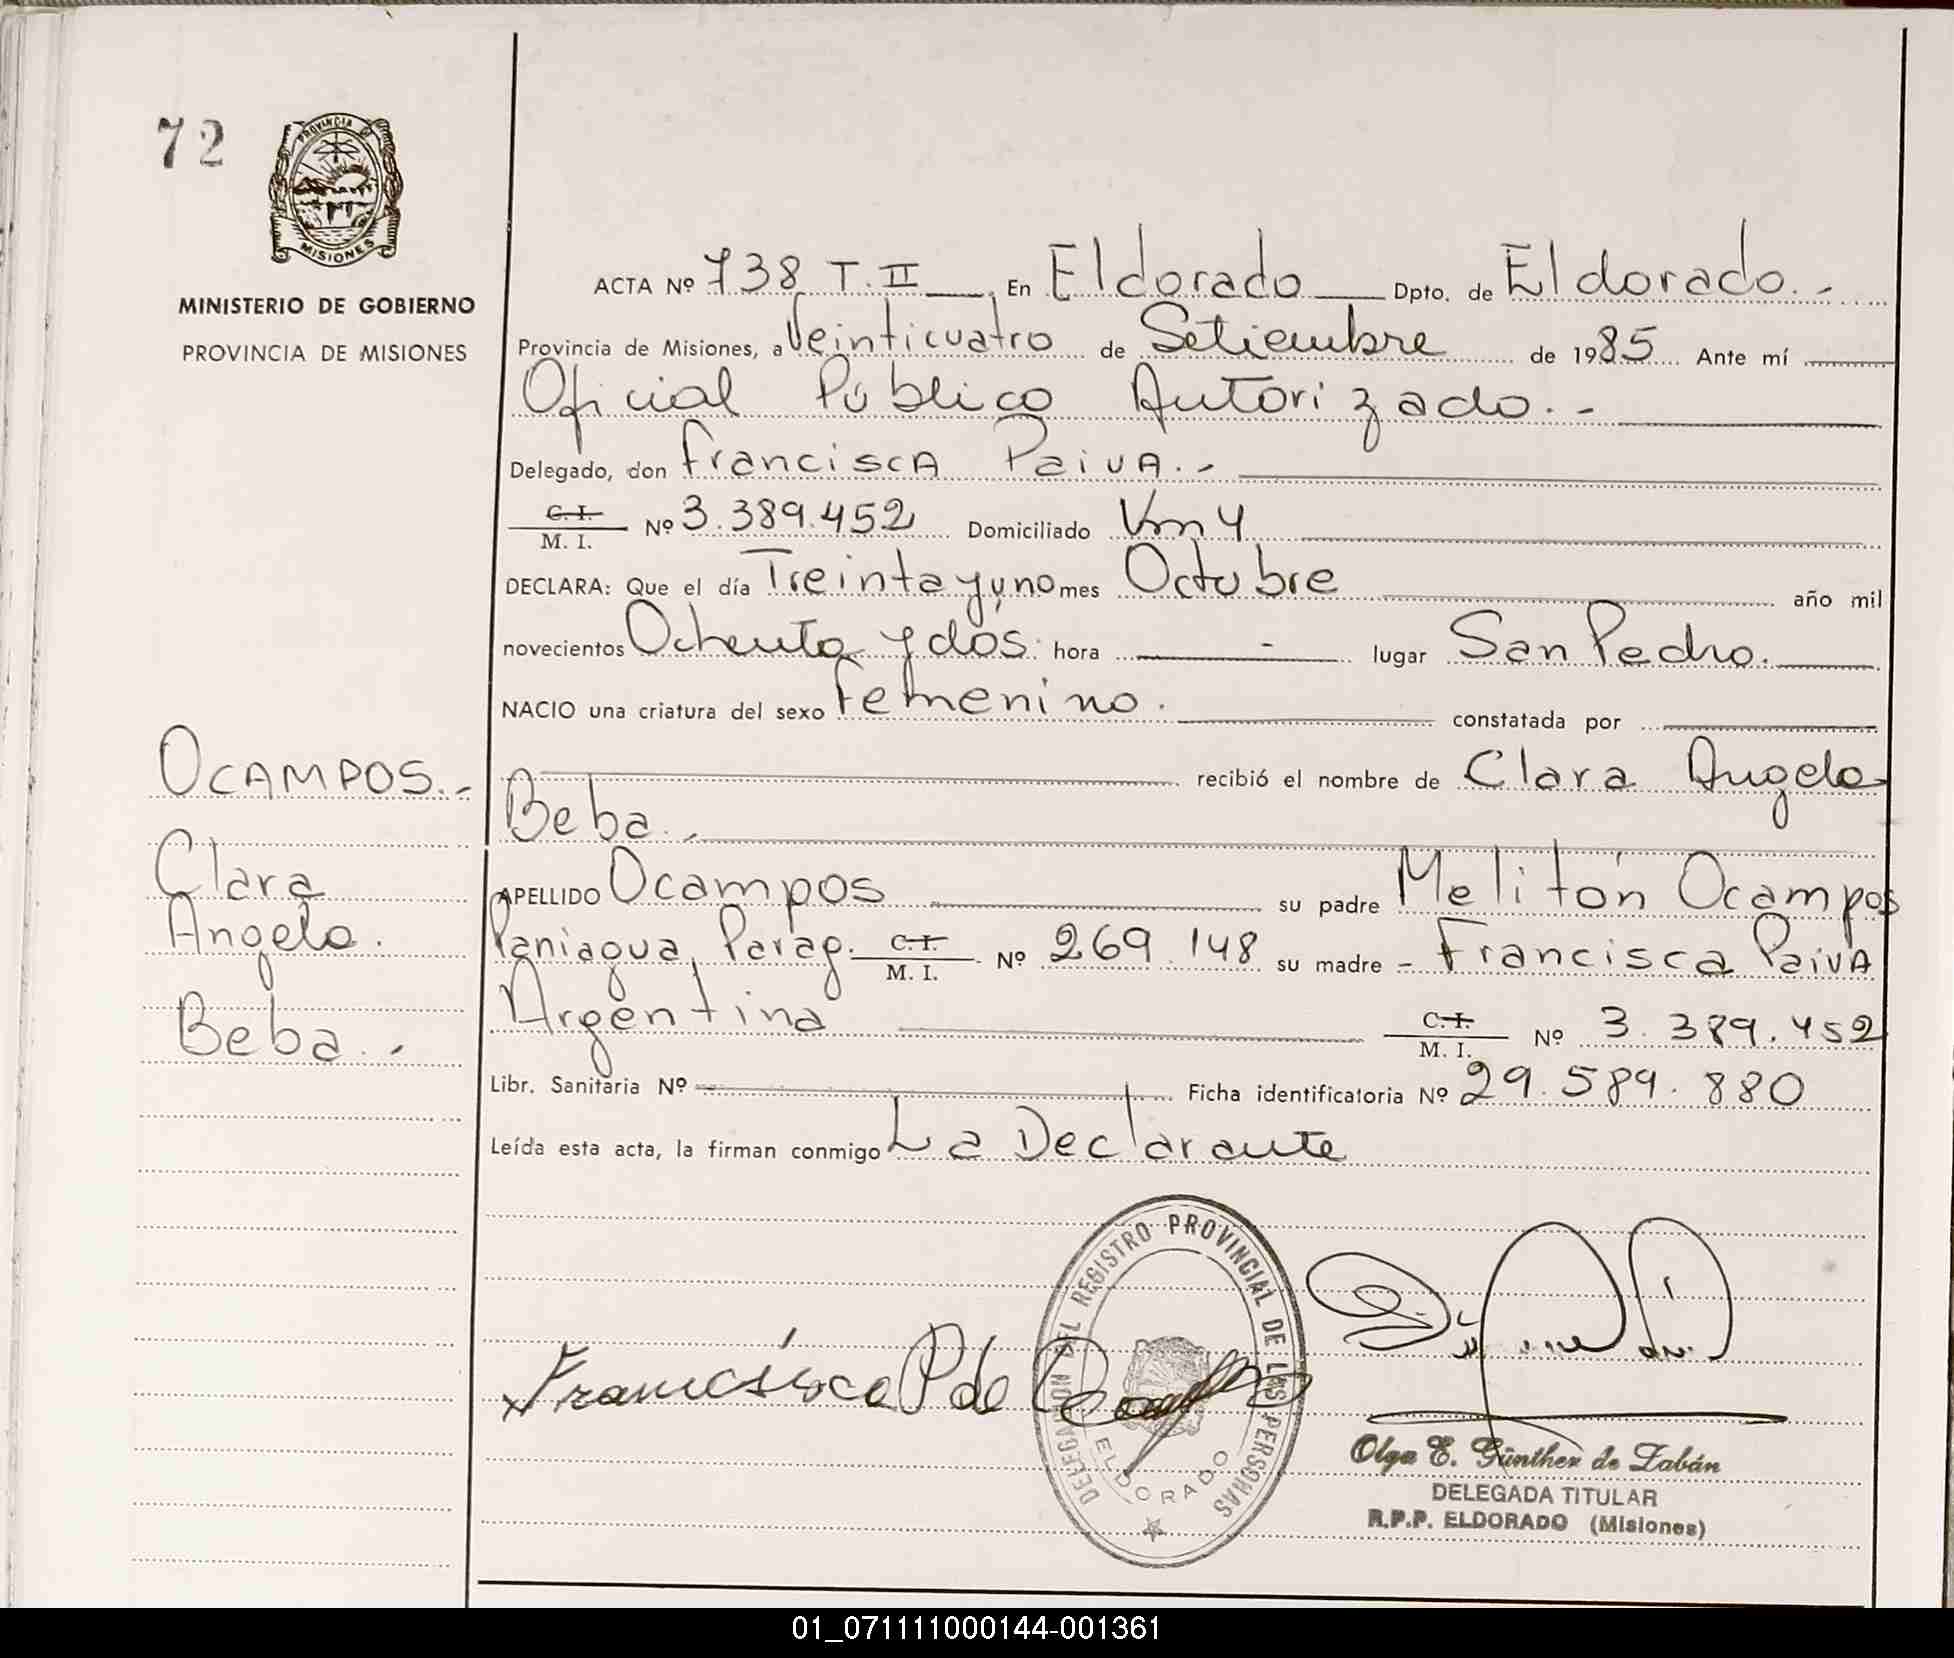 72
PROVINCIA DE
MISIONES
MINISTERIO DE GOBIERNO
PROVINCIA DE MISIONES
ACTA Nº 738 T. II En Eldorado Dpto. de Eldorado.-
Provincia de Misiones, a Veinticuatro de Setiembre de 1985 Ante mí
Oficial Público Autorizado.-
Delegado, don Francisca Paiva.-
C. I.
M. I. Nº 3.389.452 Domiciliado Km 4
DECLARA: Que el día Treinta y uno mes Octubre año mil
novecientos Ochenta y dos hora - lugar San Pedro.
NACIO una criatura del sexo Femenino. constatada por
recibió el nombre de Clara Angela
Beba.-
APELLIDO Ocampos su padre Melitón Ocampos
Paniagua, Parag. C. I. M. I. Nº 269.148 su madre - Francisca Paiva
Argentina C. I. M. I. Nº 3.389.452
Libr. Sanitaria Nº Ficha identificatoria Nº 29.589.880
Leída esta acta, la firman conmigo La Declarante
OCAMPOS.-
Clara
Angela.
Beba.-
DELEGACION DEL REGISTRO PROVINCIAL DE LAS PERSONAS
ELDORADO
Francisca P de
Olga E. Günther de Zabán
DELEGADA TITULAR
R.P.P. ELDORADO (Misiones)
01_071111000144-001361